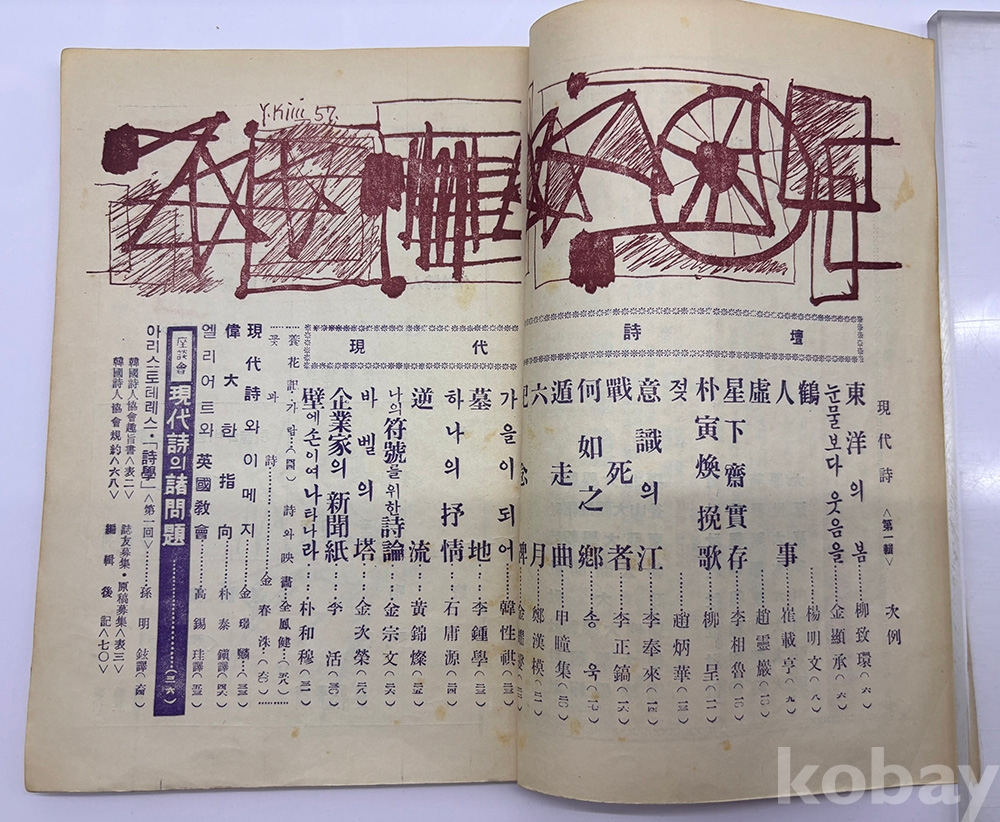 Y.Kim 57.
現代詩 <第一輯> 次例
詩壇
東洋의 봄……柳致環(六)
눈물보다 웃음을……金顯承(六)
鶴……楊明文(八)
人事……崔載亨(九)
虛……趙靈巖(一〇)
星下齋實存……李相魯(一〇)
朴寅煥挽歌……柳呈(一一)
젖……趙炳華(一三)
意識의 江……李奉來(一四)
戰死者……李正鎬(一六)
何如之鄕……송욱(一七)
遁走曲……申瞳集(二〇)
六月……鄭漢模(二一)
紀念碑……
現代
가을이 되어……韓性祺(二三)
墓地……李鍾學(二三)
하나의 抒情……石庸源(二四)
逆流……黃錦燦(二五)
나의 符號를 위한 詩論……金宗文(二六)
바벨의 塔……金次榮(二八)
企業家의 新聞紙……李活(三〇)
壁에 손이여 나타나라……朴和穆(三一)
蓑花記·가람(四四) 詩와 映畵…全鳳健…(五八)
꽃과 詩……金春洙…(六〇)
現代詩와 이메지……金璟麟
偉大한 指向……朴泰鎭譯
엘리어트와 英國敎會……高錫珪譯
座談會 現代詩의 諸問題……(三六)
아리스토테레스·「詩學」<第一回>……孫明鉉譯(六四)
韓國詩人協會趣旨書<表二> 誌友募集·原稿募集<表三>
韓國詩人協會規約<六八> 編輯後記<七〇>
kobay